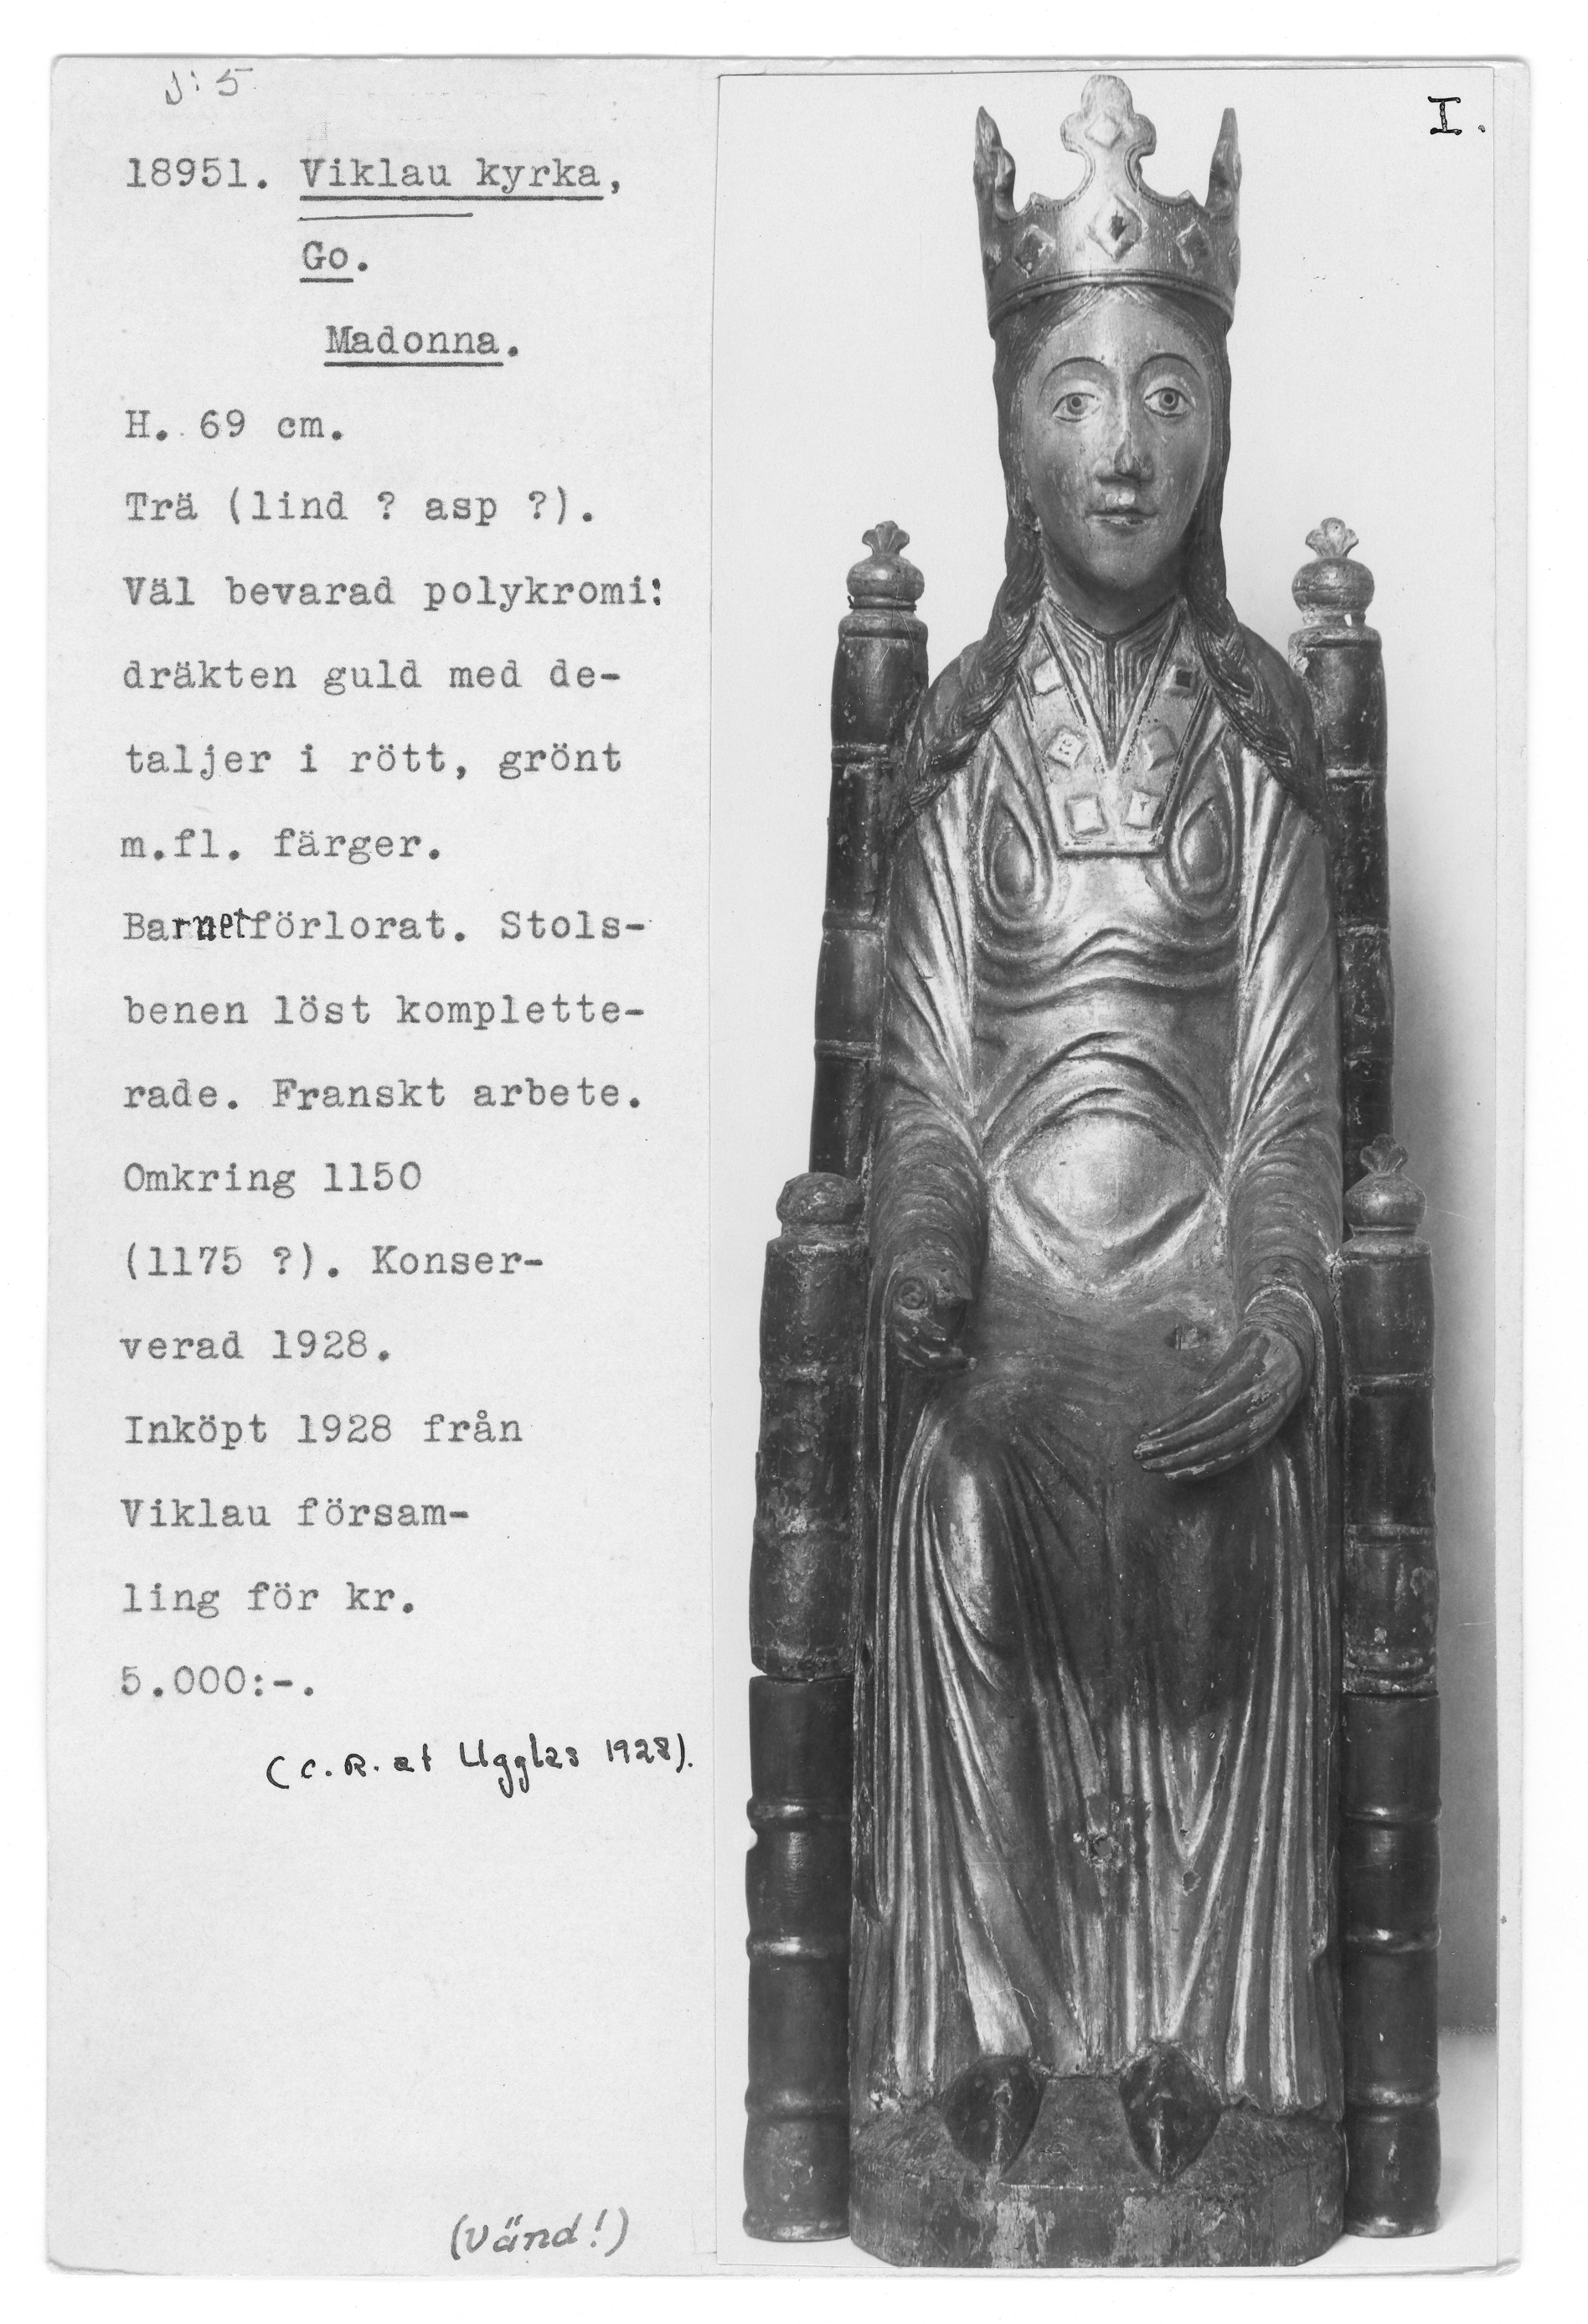 J:5
I.
18951. Viklau kyrka,
Go.
Madonna.
H. 69 cm.
Trä (lind ? asp ?).
Väl bevarad polykromi:
dräkten guld med de-
taljer i rött, grönt
m.fl. färger.
Barnet förlorat. Stols-
benen löst komplette-
rade. Franskt arbete.
Omkring 1150
(1175 ?). Konser-
verad 1928.
Inköpt 1928 från
Viklau försam-
ling för kr.
5.000:-.
(C.R. af Ugglas 1928).
(Vänd!)